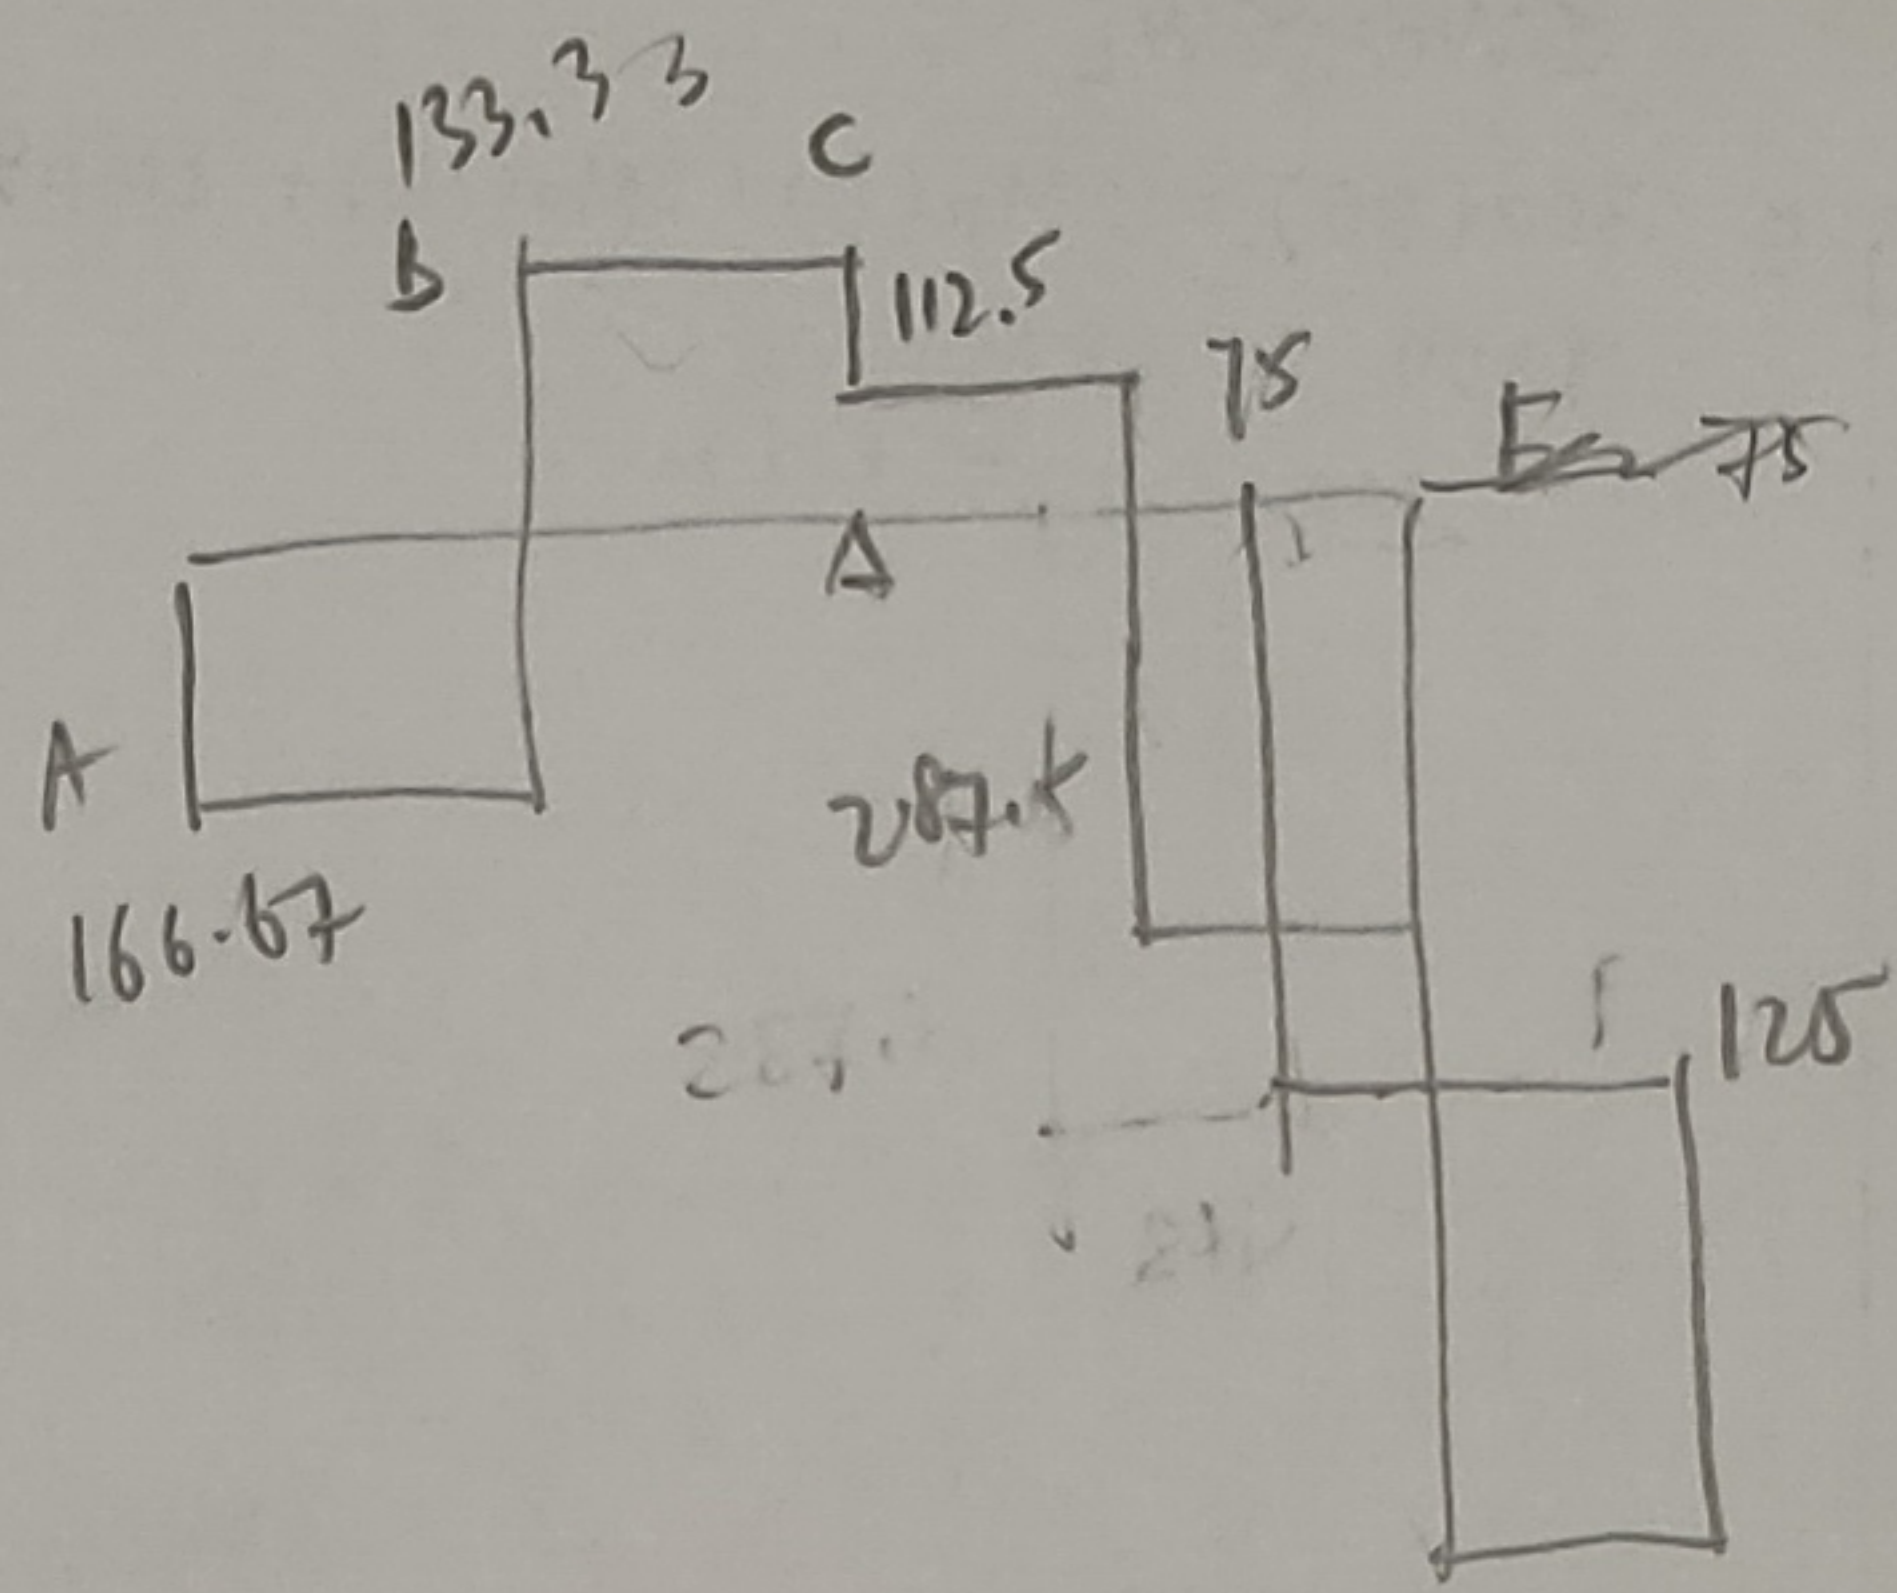 133.33
C
B
112.5
75
75
A
287.5
166.67
125